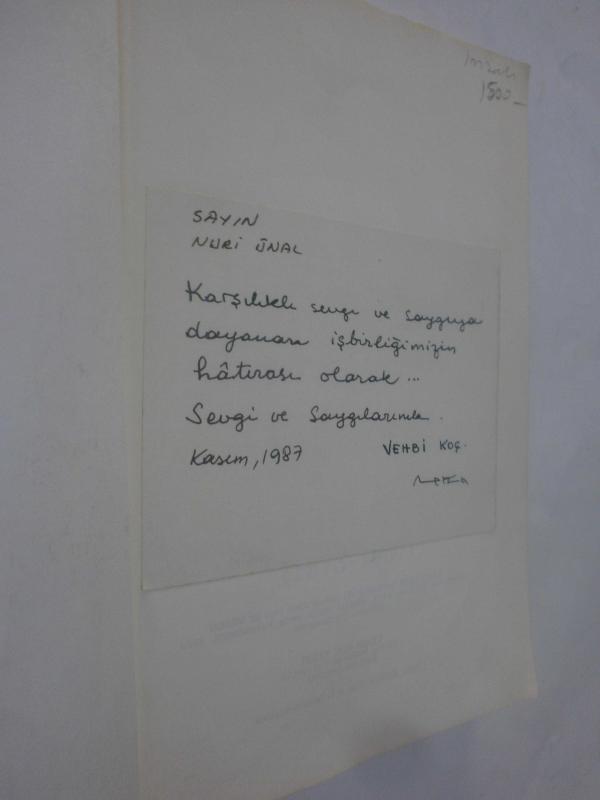 İmzalı
1500-
SAYIN
NURİ ÜNAL
Karşılıklı sevgi ve saygıya
dayanan işbirliğimizin
hâtırası olarak ...
Sevgi ve Saygılarımla.
Kasım, 1987 VEHBİ KOÇ.